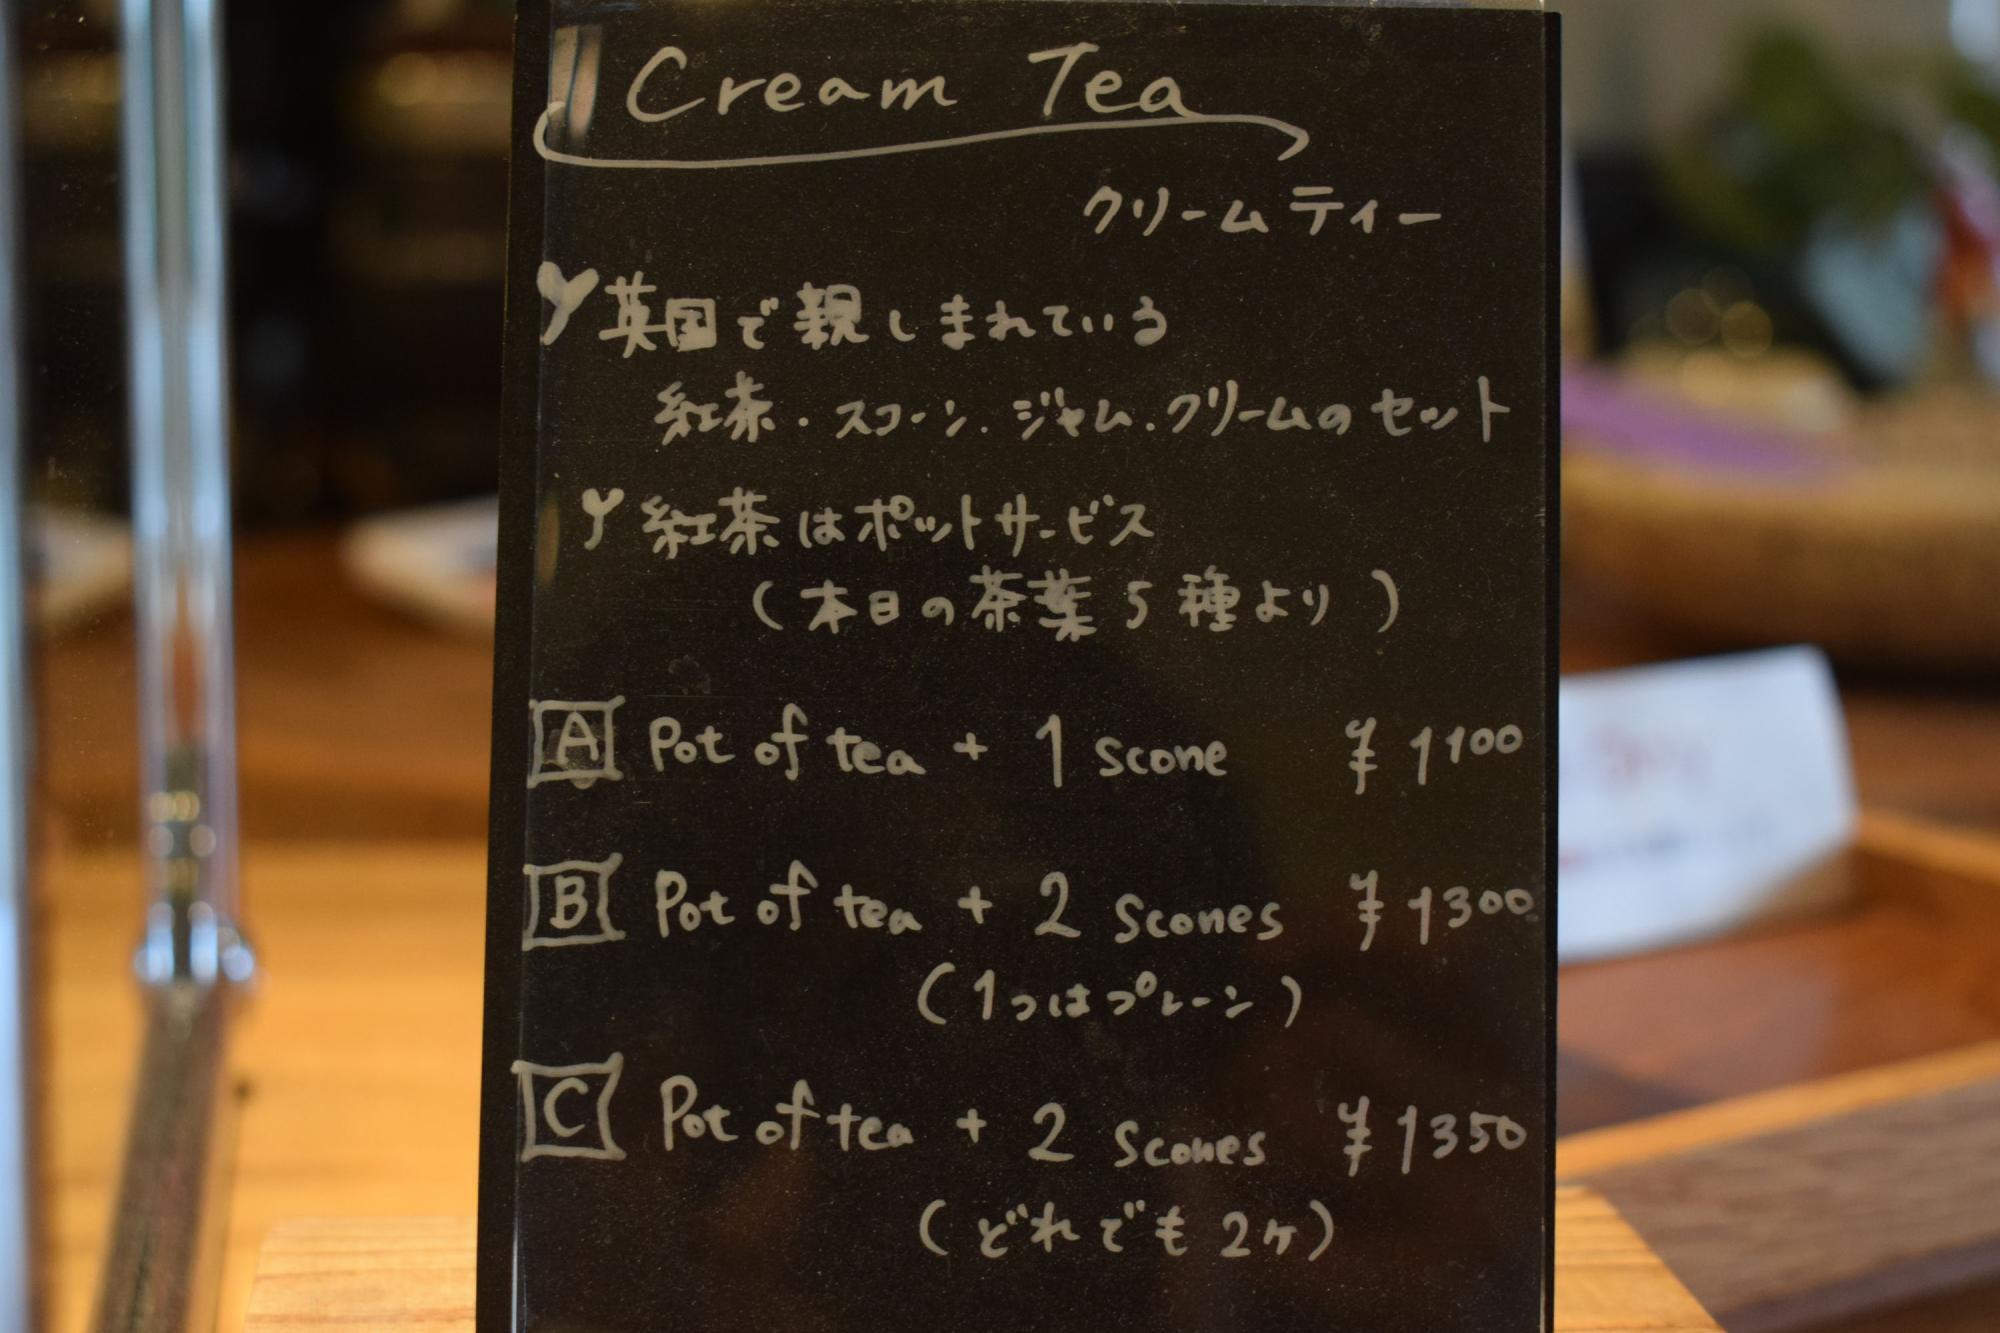 Cream Tea
クリームティー
英国で親しまれている
紅茶・スコーン・ジャム・クリームのセット
紅茶はポットサービス
(本日の茶葉5種より)
A Pot of tea + 1 scone ¥1100
B Pot of tea + 2 scones ¥1300
(1つはプレーン)
C Pot of tea + 2 scones ¥1350
(どれでも2ヶ)